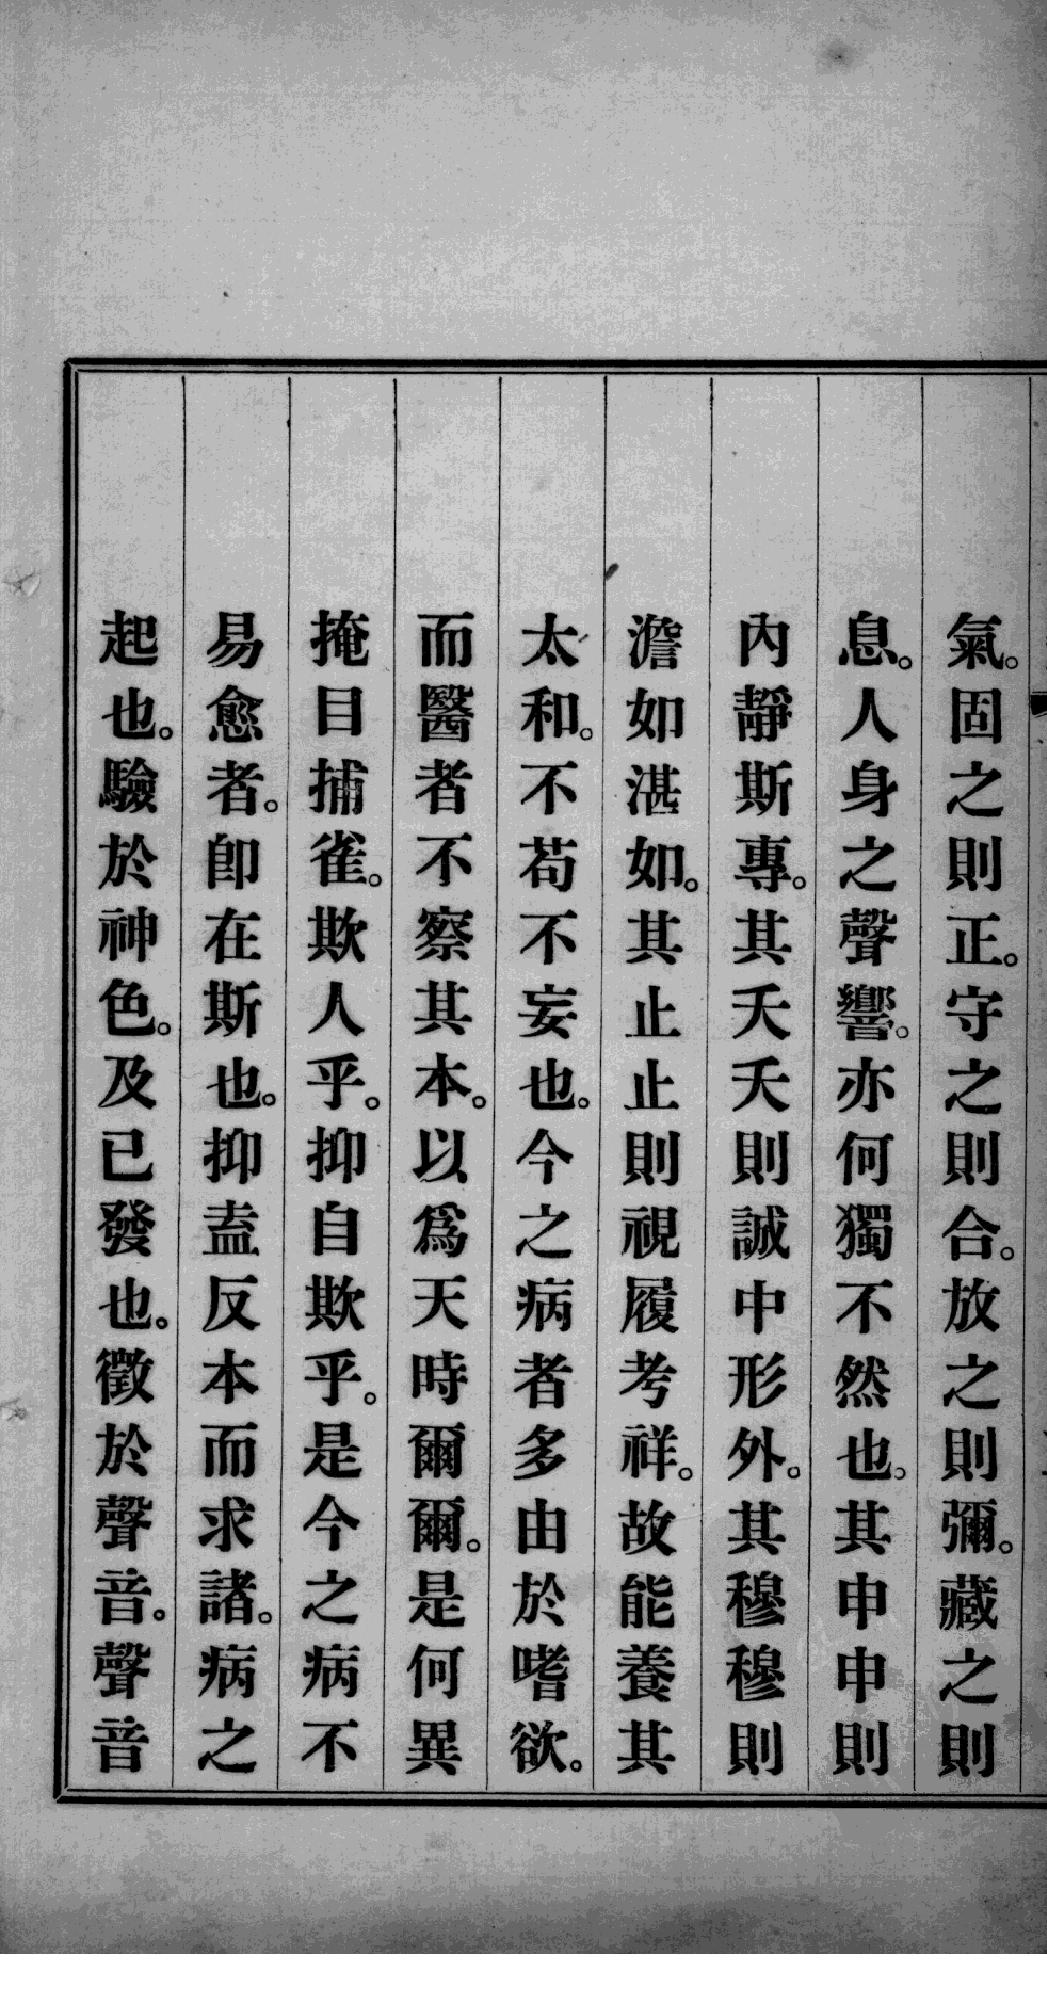 氣。固之則正。守之則合。放之則彌。藏之則
息。人身之聲響。亦何獨不然也。其申申則
內靜斯專。其夭夭則誠中形外。其穆穆則
澹如湛如。其止止則視履考祥。故能養其
太和。不苟不妄也。今之病者多由於嗜欲。
而醫者不察其本。以爲天時爾爾。是何異
掩目捕雀。欺人乎。抑自欺乎。是今之病不
易愈者。卽在斯也。抑盍反本而求諸。病之
起也。驗於神色。及已發也。徵於聲音。聲音